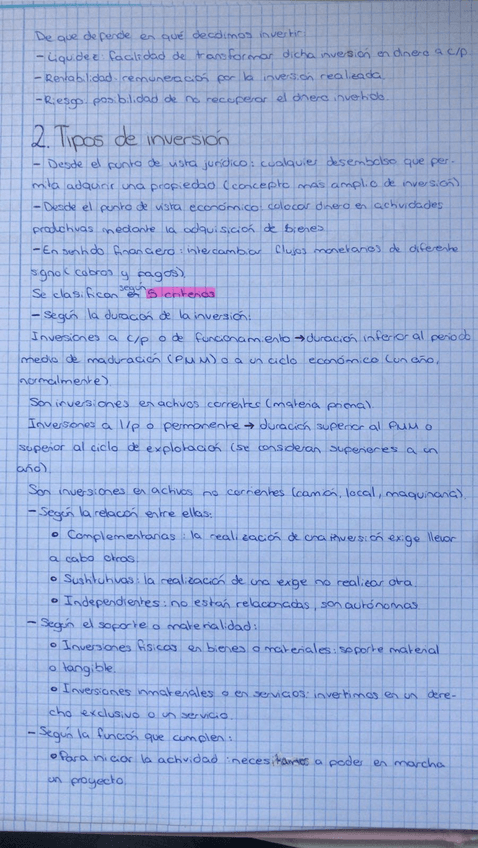 De que depende en qué decidimos invertir:
- Liquidez: facilidad de transformar dicha inversión en dinero a c/p
- Rentabilidad: remuneración por la inversión realizada.
- Riesgo: posibilidad de no recuperar el dinero invertido.
2. Tipos de inversión
- Desde el punto de vista jurídico: cualquier desembolso que per-
mita adquirir una propiedad (concepto más amplio de inversión)
- Desde el punto de vista económico: colocar dinero en actividades
productivas mediante la adquisición de bienes
- En sentido financiero: intercambiar flujos monetarios de diferente
signo (cobros y pagos).
Se clasifican según 5 criterios
- Según la duración de la inversión:
Inversiones a c/p o de funcionamiento → duración inferior al periodo
medio de maduración (PMM) o a un ciclo económico (un año,
normalmente)
Son inversiones en activos corrientes (materia prima).
Inversiones a l/p o permanente → duración superior al PMM o
superior al ciclo de explotación (se consideran superiores a un
año).
Son inversiones en activos no corrientes (camión, local, maquinaria).
- Según la relación entre ellas:
• Complementarias: la realización de una inversión exige llevar
a cabo otras.
• Sustitutivas: la realización de una exige no realizar otra.
• Independientes: no están relacionadas, son autónomas
- Según el soporte o materialidad:
• Inversiones físicas en bienes o materiales: soporte material
o tangible.
• Inversiones inmateriales o en servicios: invertimos en un dere-
cho exclusivo o un servicio.
- Según la función que cumplen:
• Para iniciar la actividad: necesitamos a poder en marcha
un proyecto.